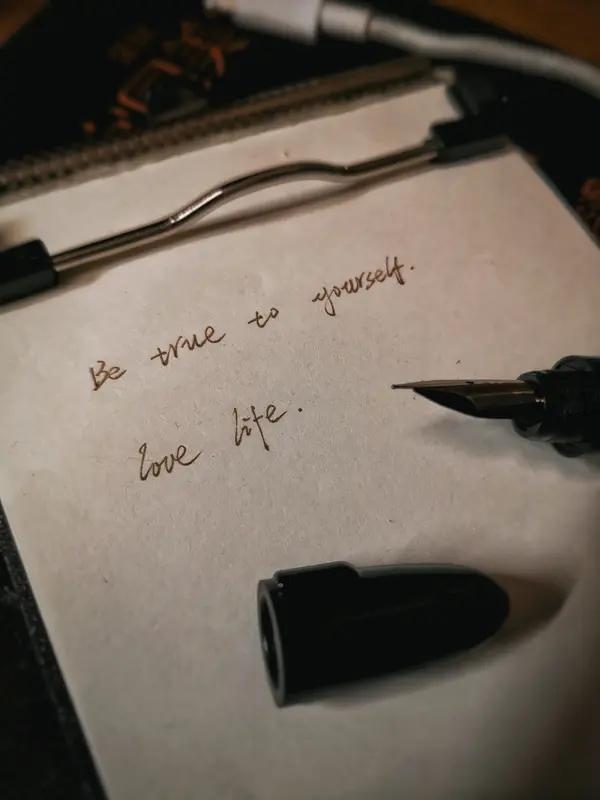 Be true to yourself.
love life.